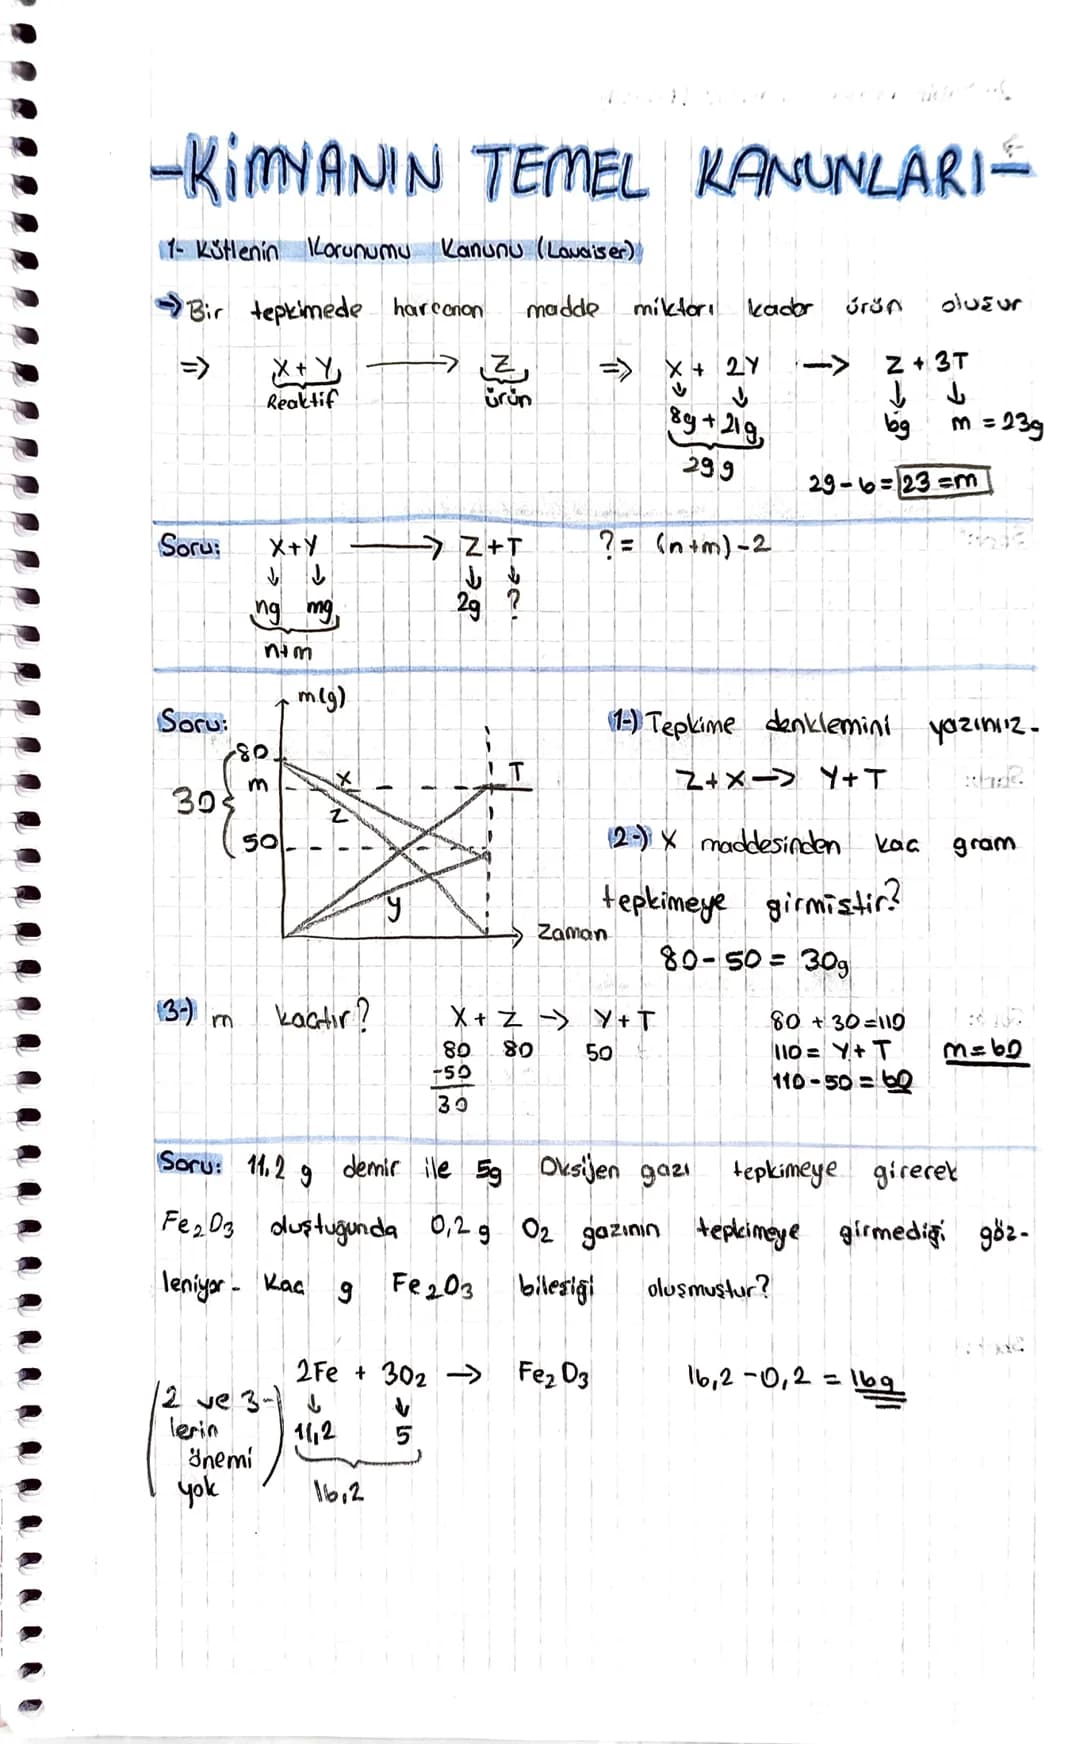 -KİMYANIN TEMEL KANUNLARI-
1- Kütlenin Korunumu Kanunu (Lavaiser)
→ Bir tepkimede harcanan madde miktarı kadar ürün oluşur
=> X + Y → Z => X + 2Y --> Z + 3T
Reaktif ürün ↓ ↓ ↓ ↓
8g + 21g 6g m = 23g
29g
29-6 = 23 = m
Soru: X+Y → Z+T ? = (n+m)-2
↓ ↓ ↓ ↓
ng mg 2g ?
n+m
Soru: m(g)
80
m
30
50
X
Z
T
y
Zaman
1-) Tepkime denklemini yazınız-
Z+X → Y+T
2-) X maddesinden kaç gram
tepkimeye girmiştir?
80-50 = 30g
3-) m kaçtır? X + Z → Y+T 80 + 30=110
80 80 50 110 = Y+T m=60
-50 110-50 = 60
30
Soru: 11,2 g demir ile 5g Oksijen gazı tepkimeye girerek
Fe2O3 oluştuğunda 0,2 g O2 gazının tepkimeye girmediği göz-
leniyor- Kaç g Fe2O3 bileşiği oluşmuştur?
2Fe + 3O2 → Fe2O3 16,2-0,2 = 16g
↓ ↓
11,2 5
16,2
(2 ve 3-
lerin
önemi
yok)